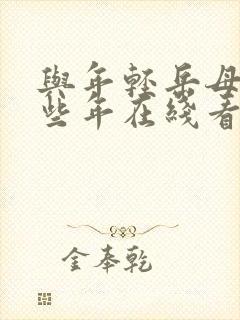 與年輕岳母
些年在綫看
金奉乾